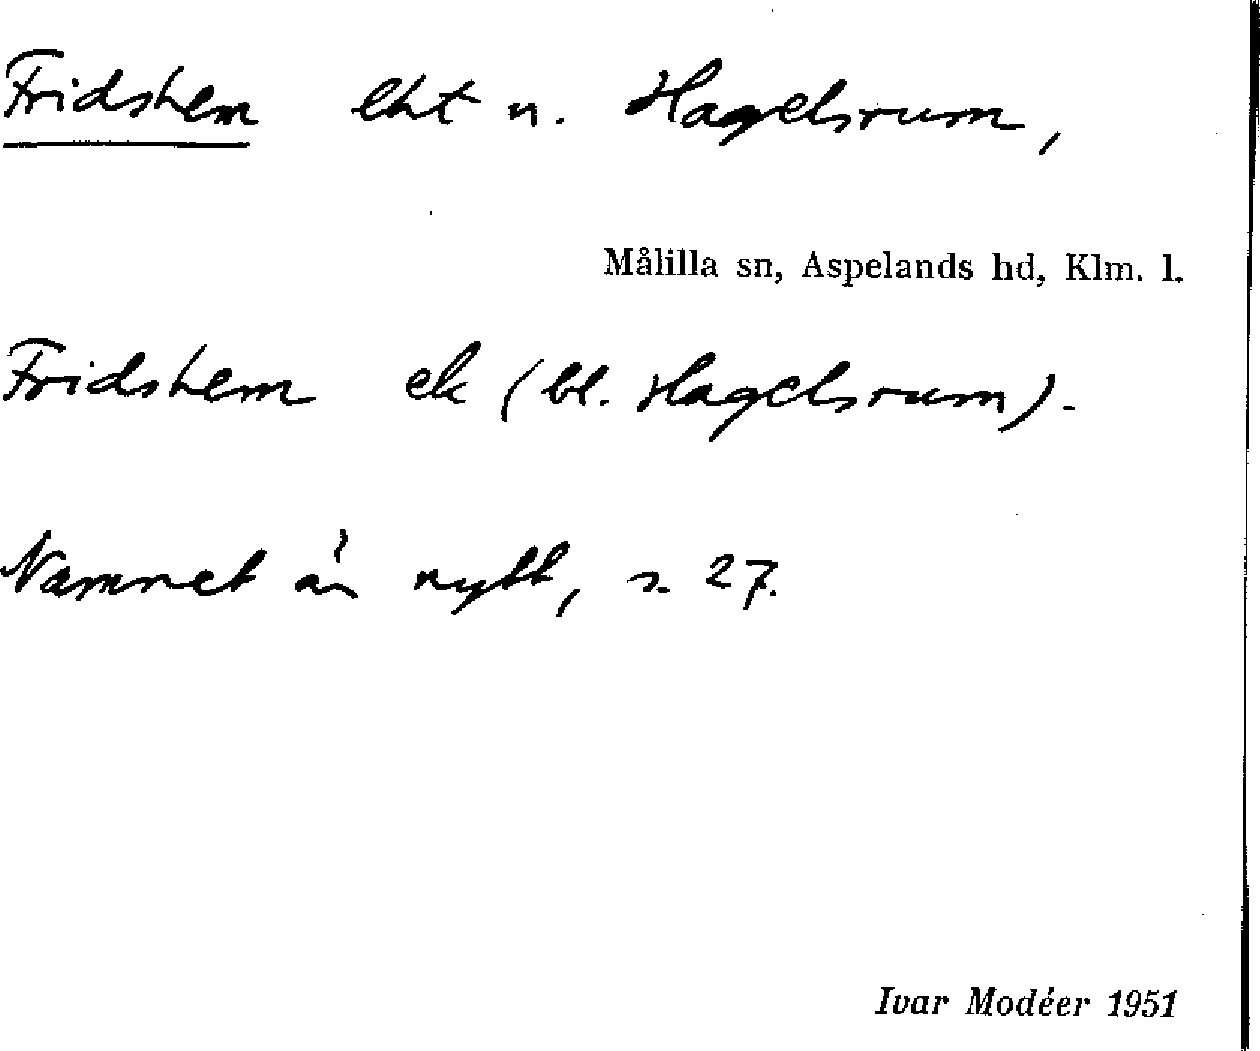 Fridshem lht u. Hagelsrum,
Målilla sn, Aspelands hd, Klm. l.
Fridshem ek (bl. Hagelsrum).
Namnet är nytt, s. 27.
Ivar Modéer 1951